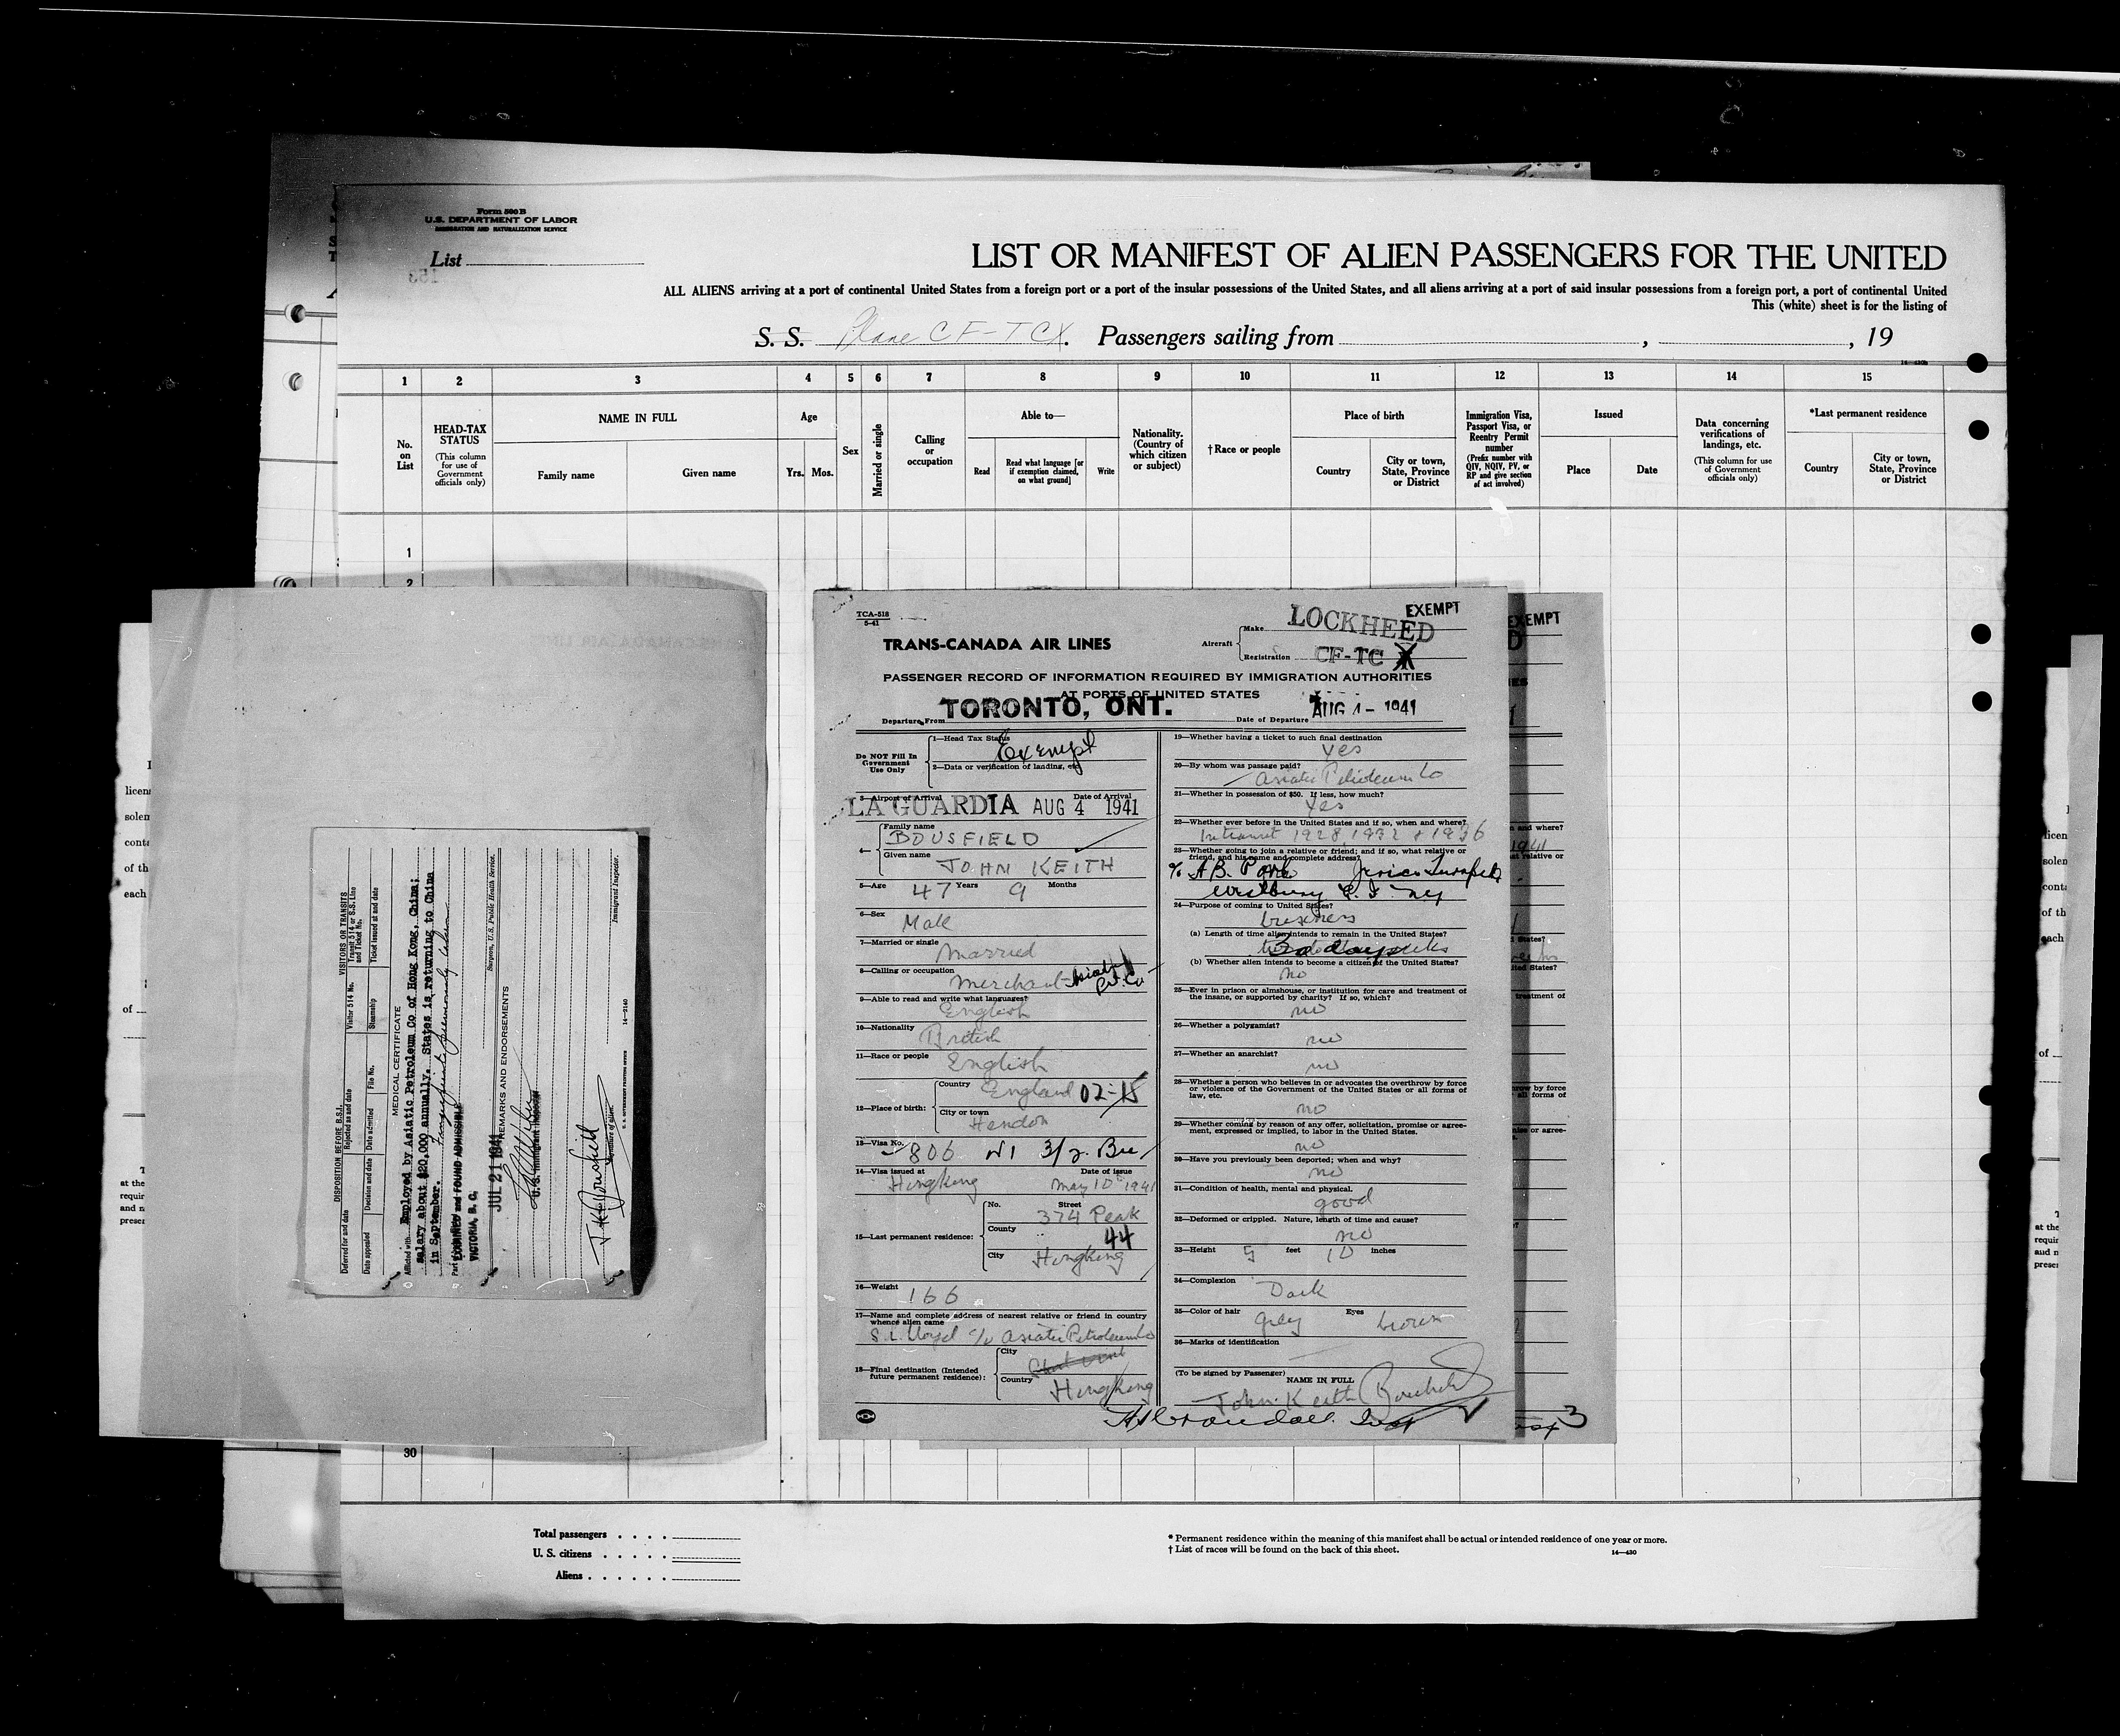 Form 500 B
U.S. DEPARTMENT OF LABOR
IMMIGRATION AND NATURALIZATION SERVICE
List
LIST OR MANIFEST OF ALIEN PASSENGERS FOR THE UNITED
ALL ALIENS arriving at a port of continental United States from a foreign port or a port of the insular possessions of the United States, and all aliens arriving at a port of said insular possessions from a foreign port, a port of continental United
This (white) sheet is for the listing of
S. S. Plane CF-TCX. Passengers sailing from , , 19
1 2 3 4 5 6 7 8 9 10 11 12 13 14 15
No. on List
HEAD-TAX STATUS
(This column for use of Government officials only)
NAME IN FULL
Family name Given name
Age
Yrs. Mos.
Sex
Married or single
Calling or occupation
Able to—
Read
Read what language [or if exemption claimed, on what ground]
Write
Nationality. (Country of which citizen or subject)
†Race or people
Place of birth
Country
City or town, State, Province or District
Immigration Visa, Passport Visa, or Reentry Permit number
(Prefix number with QIV, NQIV, PV, or RP and give section of act involved)
Issued
Place Date
Data concerning verifications of landings, etc.
(This column for use of Government officials only)
*Last permanent residence
Country
City or town, State, Province or District
1
2
DISPOSITION BEFORE B.S.I.
VISITORS OR TRANSITS
Deferred for and date
Rejected as and date
Visitor 514 No.
Transit 514 or S.S. Line and Ticket No.
Date appealed
Decision and date
Date admitted
File No.
Steamship
Ticket issued at and date
MEDICAL CERTIFICATE
Afflicted with Employed by Asiatic Petroleum Co of Hong Kong, China;
salary about $20,000 annually. States is returning to China
in September.
EXAMINED and FOUND ADMISSIBLE
VICTORIA, B. C.
Surgeon, U.S. Public Health Service.
JUL 21 1941
REMARKS AND ENDORSEMENTS
U.S. Immigrant Inspector
J. K. Bousfield
Signature of alien.
Immigrant Inspector.
U. S. GOVERNMENT PRINTING OFFICE 14—2140
TCA-518
5-41
TRANS-CANADA AIR LINES
Aircraft
Make LOCKHEED
EXEMPT
Registration CF-TC X
PASSENGER RECORD OF INFORMATION REQUIRED BY IMMIGRATION AUTHORITIES
AT PORTS OF UNITED STATES
Departure From TORONTO, ONT.
Date of Departure AUG 4 - 1941
Do NOT Fill In Government Use Only
1—Head Tax Status Exempt
2—Data or verification of landing, etc.
3—Airport of Arrival LA GUARDIA
Date of Arrival AUG 4 1941
4— Family name BOUSFIELD
Given name JOHN KEITH
5—Age 47 Years 9 Months
6—Sex Male
7—Married or single Married
8—Calling or occupation Merchant Asiatic Pet. Co
9—Able to read and write what languages? English
10—Nationality British
11—Race or people English
12—Place of birth: Country England 02-15
City or town Hendon
13—Visa No. 806
14—Visa issued at Hongkong
Date of issue May 10 1941
15—Last permanent residence:
No. Street 374 Peak
County 44
City Hongkong
16—Weight 166
17—Name and complete address of nearest relative or friend in country whence alien came
S. L. Lloyd c/o Asiatic Petroleum Co
18—Final destination (Intended future permanent residence):
City
Country Hongkong
19—Whether having a ticket to such final destination
yes
20—By whom was passage paid?
Asiatic Petroleum Co
21—Whether in possession of $50. If less, how much?
Yes
22—Whether ever before in the United States and if so, when and where?
Intransit 1928 1932 & 1936
23—Whether going to join a relative or friend; and if so, what relative or friend, and his name and complete address?
Westbury L. I. NY
24—Purpose of coming to United States?
business
(a) Length of time alien intends to remain in the United States?
(b) Whether alien intends to become a citizen of the United States?
no
25—Ever in prison or almshouse, or institution for care and treatment of the insane, or supported by charity? If so, which?
no
26—Whether a polygamist?
no
27—Whether an anarchist?
no
28—Whether a person who believes in or advocates the overthrow by force or violence of the Government of the United States or all forms of law, etc.
no
29—Whether coming by reason of any offer, solicitation, promise or agreement, expressed or implied, to labor in the United States.
no
30—Have you previously been deported; when and why?
no
31—Condition of health, mental and physical.
good
32—Deformed or crippled. Nature, length of time and cause?
no
33—Height 5 feet 10 inches
34—Complexion Dark
35—Color of hair grey Eyes brown
36—Marks of identification
(To be signed by Passenger)
NAME IN FULL
John Keith Bousfield
30
Total passengers
U. S. citizens
Aliens
* Permanent residence within the meaning of this manifest shall be actual or intended residence of one year or more.
† List of races will be found on the back of this sheet.
14—430